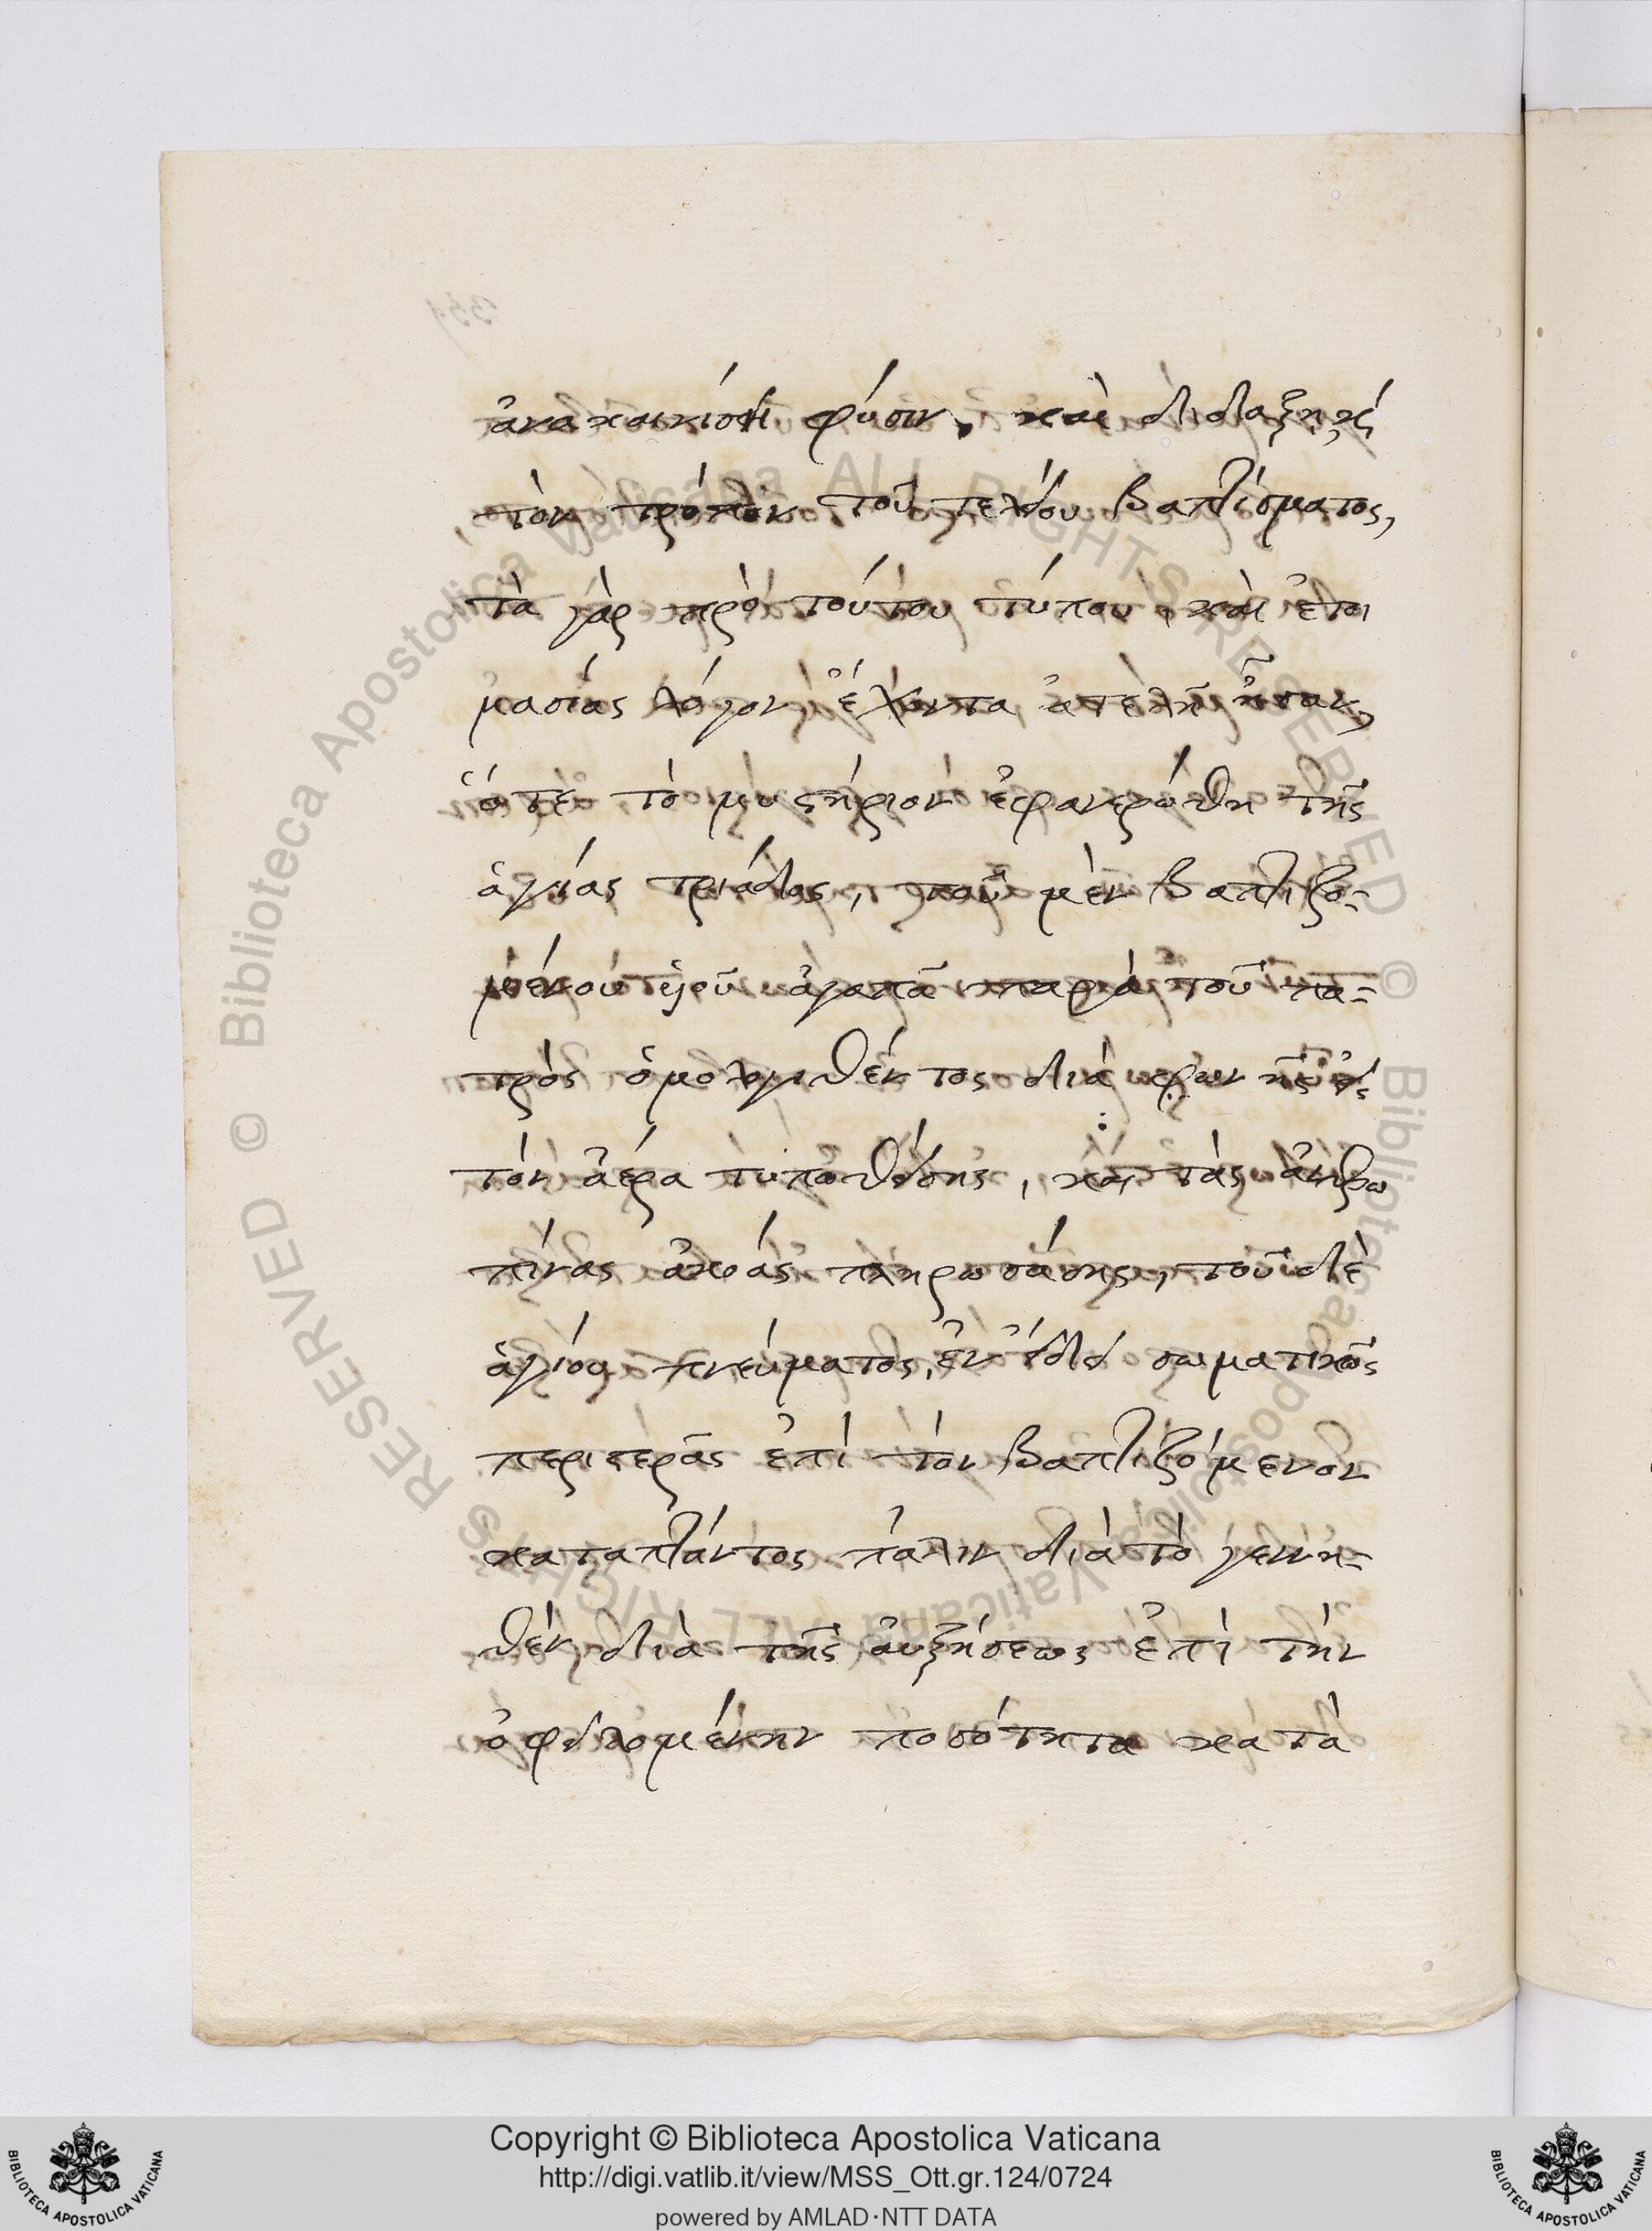 ἀνακαινίσῃ φύσιν, καὶ διδαξη κ
τὸν τρόπον τοῦ τελείου βαπτίσματος,
τὰ γὰρ πρὸ τούτου τύπου καὶ ἑτοι
μασίας λόγον ἔχοντα ἀτελῆ ἦσαν,
ὅτε τὸ μυστήριον ἐφανερώθη τῆς
ἁγίας τριάδος, τοῦ μὲν βαπτιζο-
μένου υἱοῦ ἀγαπᾶ παρὰ τοῦ πα-
τρὸς ὁμολογηθέντος διὰ φωνῆς εἰς
τὸν ἀέρα τυπωθείσης, καὶ τὰς ἀνθρω
πίνας ἀκοάς πληρωσάσης, τοῦ δὲ
ἁγίου πνεύματος, ἐν εἴδει σωματικῶς
περιστερᾶς ἐπὶ τὸν βαπτιζόμενον
καταπτάντος πάλιν διὰ τὸ γεννη-
θὲν διὰ τῆς αὐξήσεως ἐπὶ τὴν
ὀφειλομένην ποσότητα κατὰ
Copyright © Biblioteca Apostolica Vaticana
http://digi.vatlib.it/view/MSS_Ott.gr.124/0724
powered by AMLAD·NTT DATA
BIBLIOTECA APOSTOLICA VATICANA
BIBLIOTECA APOSTOLICA VATICANA
© Biblioteca Apostolica Vaticana ALL RIGHTS RESERVED © Biblioteca Apostolica Vaticana ALL RIGHTS RESERVED